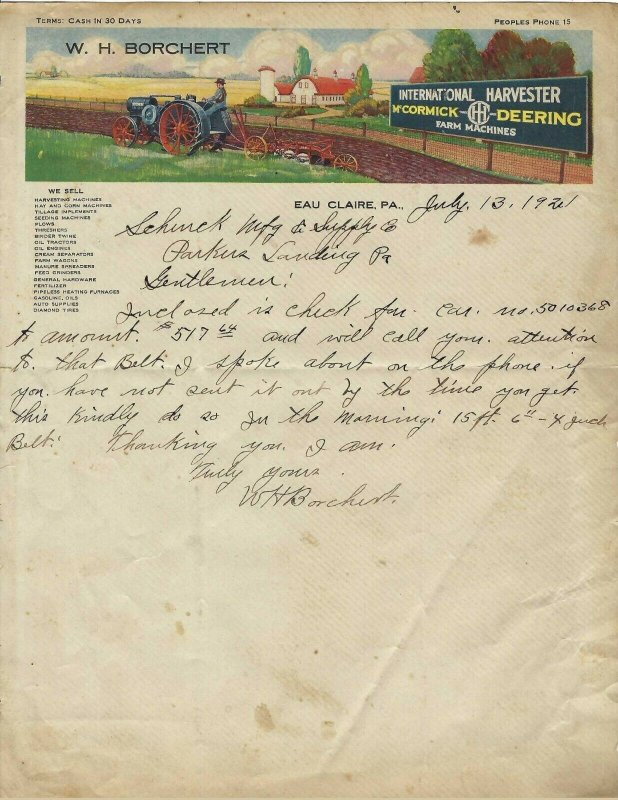 TERMS: CASH IN 30 DAYS
PEOPLES PHONE 15
W. H. BORCHERT
INTERNATIONAL HARVESTER
McCORMICK-DEERING
FARM MACHINES
WE SELL
HARVESTING MACHINES
HAY AND CORN MACHINES
TILLAGE IMPLEMENTS
SEEDING MACHINES
PLOWS
THRESHERS
BINDER TWINE
OIL TRACTORS
OIL ENGINES
CREAM SEPARATORS
FARM WAGONS
MANURE SPREADERS
FEED GRINDERS
GENERAL HARDWARE
FERTILIZER
PIPELESS HEATING FURNACES
GASOLINE, OILS
AUTO SUPPLIES
DIAMOND TIRES
EAU CLAIRE, PA., July, 13, 192
Schenck Mfg & Supply Co
Parkers Landing Pa
Gentlemen:
Inclosed is check for car. no. 5010368
to amount. $517 64 and will call your attention
to. that Belt. I spoke about on the phone. if
you have not sent it out by the time you get
this Kindly do so In the Morning: 15 ft. 6" - 4 Inch
Belt: Thanking you. I am.
Truly yours.
WHBorchert.